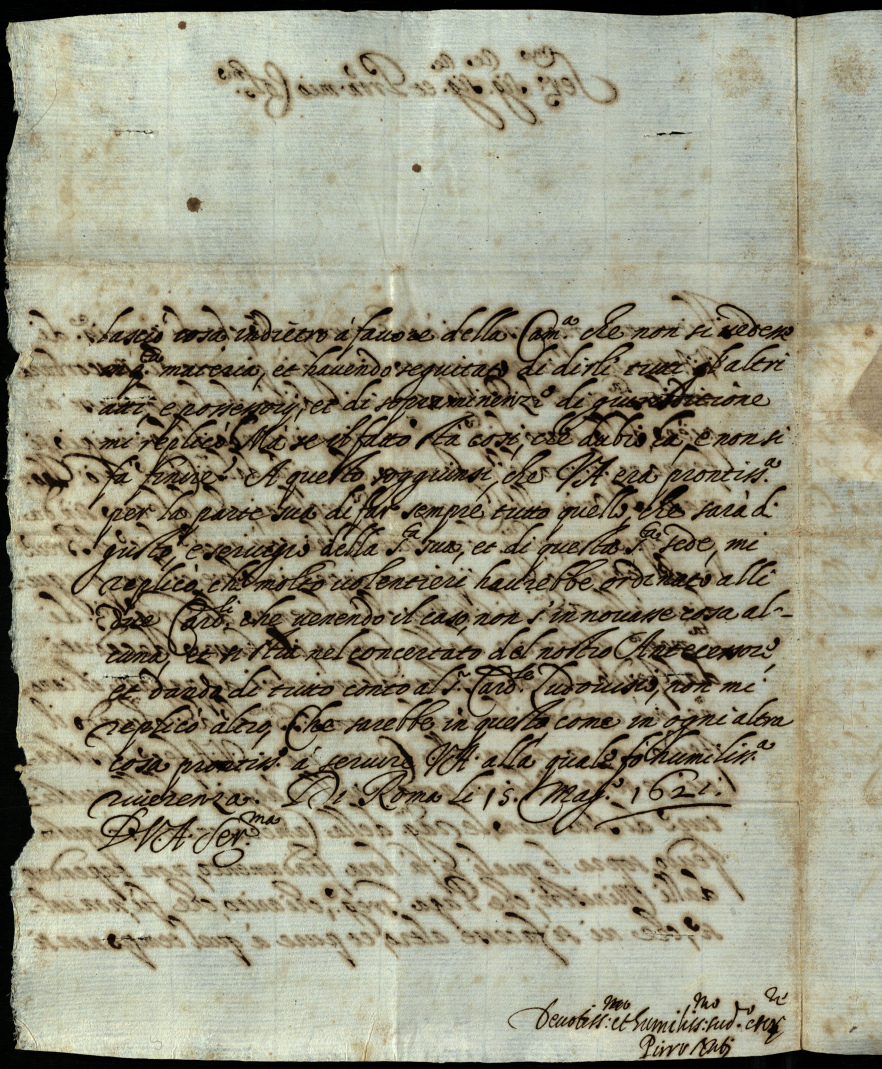 lasciò cosa indietro à favore della Cam.ª che non si vedesse
in q.sta materia, et havendo seguitato di dirli tutti gl'altri
atti, e possessorij, et di sopraminenze di giurisdittione
mi replicò, Ma se il fatto stà così, che dubio vi è e non si
fà finire? A questo soggiunsi, che V.A. era prontiss.ª
per la parte sua di far sempre tutto quello, che sarà di
gusto, e servitio della S.tà sua, et di questa S.ta sede, mi
replicò, che molto volentieri haverebbe ordinato alli
due Card.li che venendo il caso, non s'innovasse cosa al-
cuna, et si stia nel concertato del nostro Antecessore,
et dando di tutto conto al S.r Card.le Ludovisio, non mi
replicò altro, che sarebbe in questo come in ogni altra
cosa prontiss.º à servire V.A. alla quale fò humiliss.ª
riverenza. Di Roma li 15. Mag.º 1621.
D.V.A. Ser.ma
Devotiss.mo et humiliss.mo sud.º et
Pirro